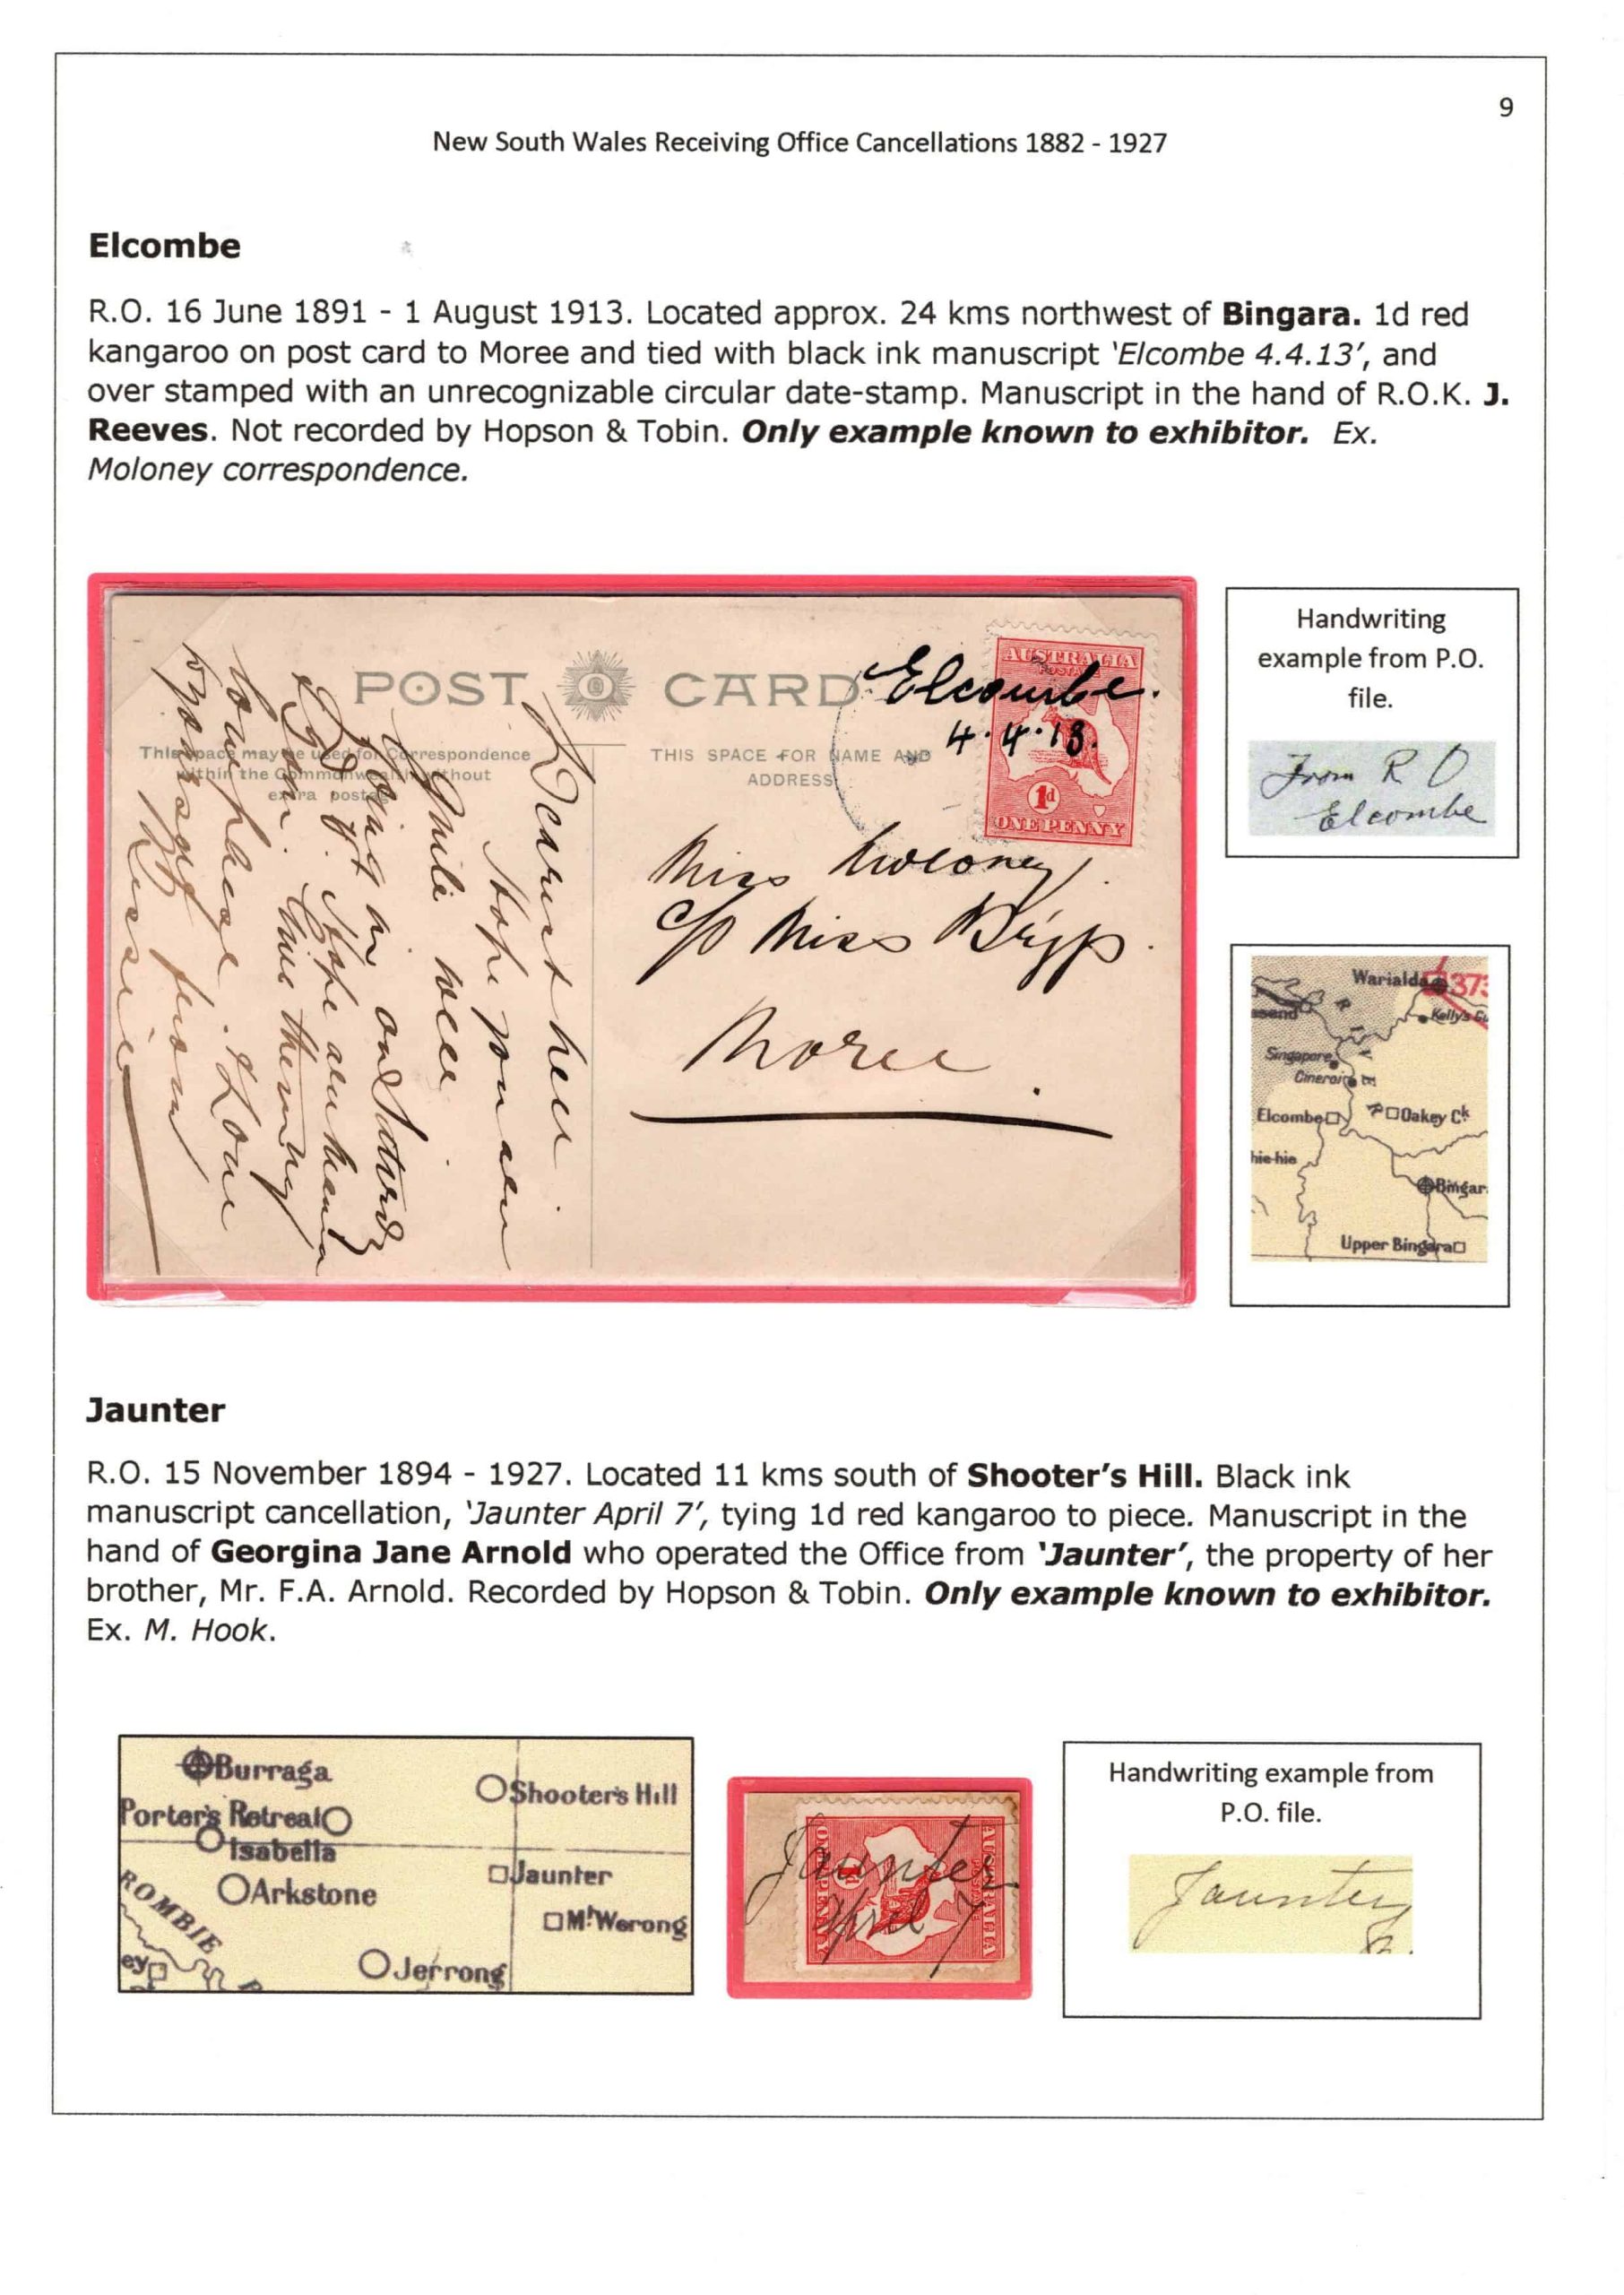 9
New South Wales Receiving Office Cancellations 1882 - 1927
Elcombe
R.O. 16 June 1891 - 1 August 1913. Located approx. 24 kms northwest of Bingara. 1d red
kangaroo on post card to Moree and tied with black ink manuscript ‘Elcombe 4.4.13’, and
over stamped with an unrecognizable circular date-stamp. Manuscript in the hand of R.O.K. J.
Reeves. Not recorded by Hopson & Tobin. Only example known to exhibitor. Ex.
Moloney correspondence.
POST CARD
This space may be used for Correspondence
within the Commonwealth without
extra postage
THIS SPACE FOR NAME AND
ADDRESS
Elcombe.
4.4.13.
AUSTRALIA
POSTAGE
1d
ONE PENNY
Miss Moloney
c/o Miss
Moree
Dearest
Hope you are
quite well
on
Hope
Give them my
love please. Love
yourself from
Handwriting
example from P.O.
file.
From R O
Elcombe
Warialda
373
Kelly's Gu
Singapore
Cineroi
Elcombe
Oakey Ck
hie-hie
Bingar
Upper Bingara
Jaunter
R.O. 15 November 1894 - 1927. Located 11 kms south of Shooter’s Hill. Black ink
manuscript cancellation, ‘Jaunter April 7’, tying 1d red kangaroo to piece. Manuscript in the
hand of Georgina Jane Arnold who operated the Office from ‘Jaunter’, the property of her
brother, Mr. F.A. Arnold. Recorded by Hopson & Tobin. Only example known to exhibitor.
Ex. M. Hook.
Burraga
Shooter's Hill
Porter's Retreat
Isabella
Jaunter
Arkstone
Mt Werong
ROMBIE
ey
Jerrong
Jaunter
April 7
AUSTRALIA
POSTAGE
1d
ONE PENNY
Handwriting example from
P.O. file.
Jaunter